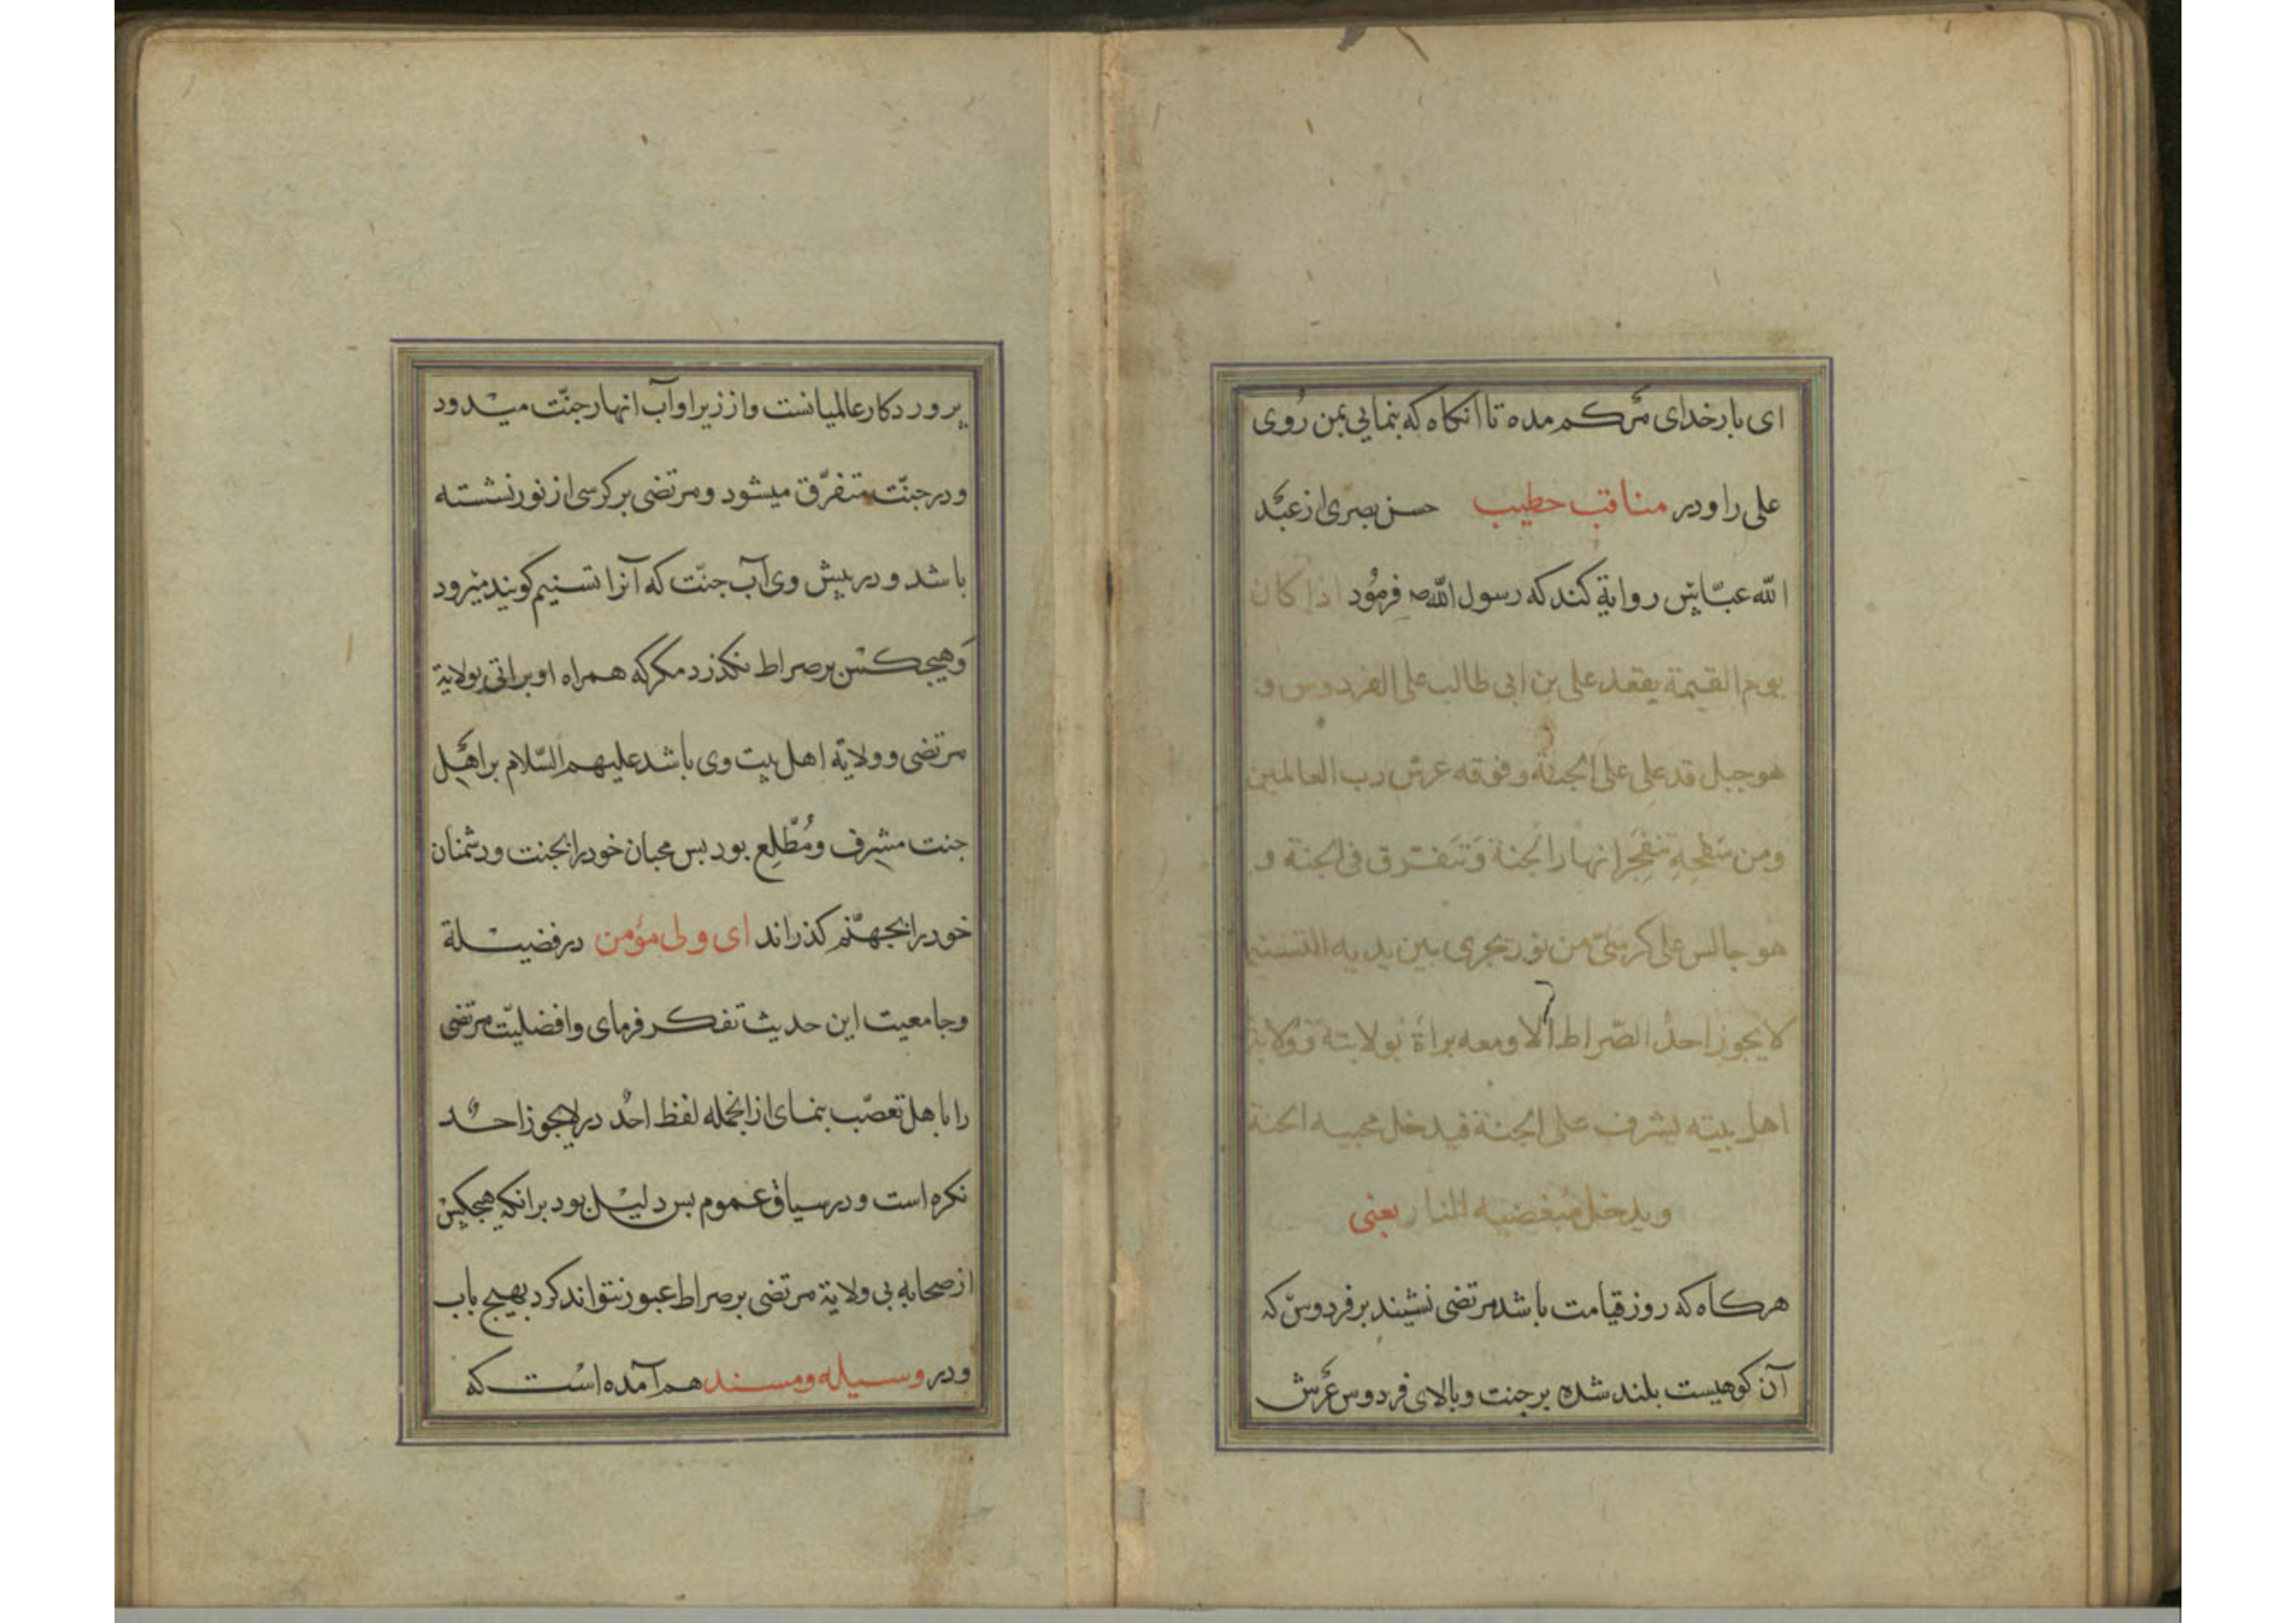 ای بار خدای مرکم مده تا انکاه که بنمایی بمن رُوی
علی را و در مناقب خطیب حسن بصری از عبد
الله عبّاس روایة کند که رسول الله ص فرمُود اذا کان
یوم القیمة یقعد علی بن ابی طالب علی الفردوس و
هو جبل قد علی علی الجنّة و فوقه عرش رب العالمین
ومن سَفحِهِ تنفجَر انهار الجنة وَتَتَفرّق فی الجنة و
هو جالس علی کرسیّ من نور یجری بین یدیه التسنیم
لا یجوز احدٌ الصّراط الّا ومعه براة بولایته وَولایة
اهل بیته یشرف علی الجنة فیدخل محبیه الجنة
ویدخل مُبغضیه النار یعنی
هرکاه که روز قیامت باشد مرتضی نشیند بر فردوس که
آن کوهیست بلند شده بر جنت و بالای فردوس عرش
پروردکار عالمیانست و از زیر او آب انهار جنّت میدود
و در جنّت متفرّق میشود و مرتضی بر کرسی از نور نشسته
باشد و در پیش وی آب جنّت که آنرا تسنیم کویند میرود
وَ هیچکس بر صراط نکذرد مکر که همراه او براتی بولایة
مرتضی و ولایة اهل بیت وی باشد علیهم السّلام بر اهل
جنت مشرف ومُطّلِع بود بس محبان خود را بجنت و دشمنان
خود را بجهنّم کذراند ای ولی مؤمن در فضیلة
وجامعیت این حدیث تفکر فرمای و افضلیّت مرتضی
را با هل تعصّب بنمای از انجمله لفظ احدٌ در لا یجوز احدٌ
نکره است و در سیاق عموم بس دلیل بود بر انکه هیچکس
از صحابه بی ولایة مرتضی بر صراط عبور نتواند کرد بهیچ باب
و در وسیله و مسند هم آمده است که